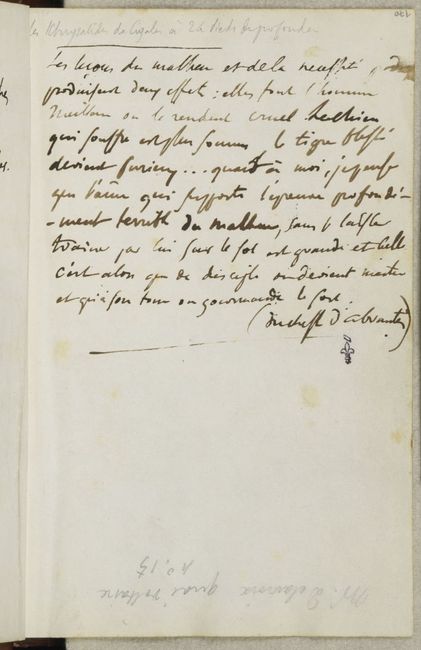 les Chrysalides de Cigales à 24 pieds de profondeur
Les leçons du malheur et de la nécessité
produisent deux effets : elles font l'homme
meilleur ou le rendent cruel le chien
qui souffre est plus soumis le tigre blessé
devient furieux... quant à moi, je pense
que l'âme qui supporte l'épreuve profondé-
-ment terrible du malheur, sans se laisser
traîner par lui sur le sol est grande et belle
c'est alors que de disciple on devient maître
et qu'à son tour on gourmande le sort.
(Duchesse d'Abrantès)
Mr. Delacroix quai Voltaire
no. 15